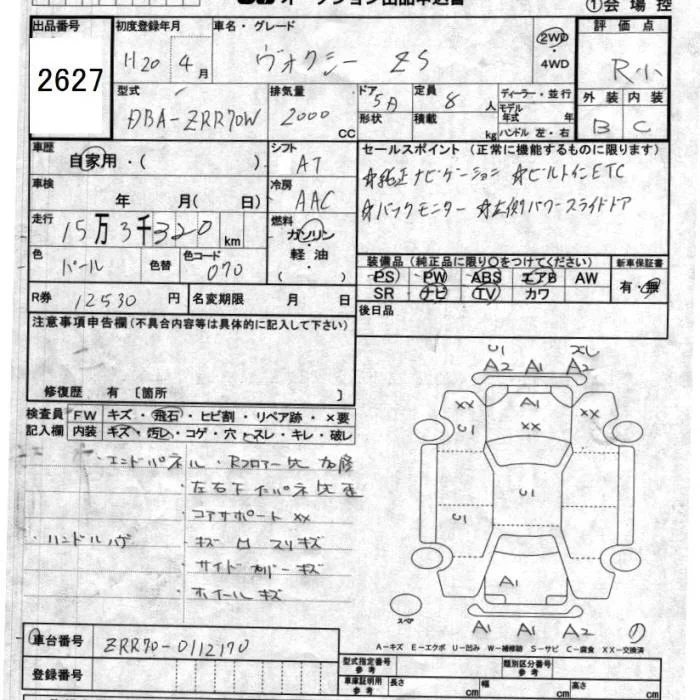 オークション出品申込書
①会場控
出品番号 初度登録年月 車名・グレード 評価点
2627
H20 4月 ヴォクシー ZS 2WD・4WD R小
型式 排気量 ドア 定員 ディーラー・並行 外装 内装
DBA-ZRR70W 2000 CC 5D 8人 モデル年式 年式 B C
形状 積載 kg ハンドル 左・右
車歴 シフト セールスポイント (正常に機能するものに限ります)
自家用・( ) AT ☆純正ナビゲーション ☆ビルトインETC
車検 冷房
年 月( 日) AAC ☆バックモニター ☆左側パワースライドドア
走行 燃料
15万3千320km ガソリン・軽油( )
色 色替 色コード 装備品(純正品に限り○をつけてください) 新車保証書
パール 070 PS PW ABS エアB AW 有・無
SR ナビ TV カワ
R券 12530円 名変期限 月 日 後日品
注意事項申告欄(不具合内容等は具体的に記入して下さい)
修復歴 有 [箇所 ]
検査員 FW キズ・飛石・ヒビ割・リペア跡・×要
記入欄 内装 キズ・汚レ・コゲ・穴・スレ・キレ・破レ
・エンドパネル・Rフロアー
・左右下
・コアサポート XX
・ハンドルハゲ ・キズ スリキズ
・サイド カバーキズ
・ホイールキズ
U1 ズレ
A2 A1 A2
XX A1 XX
U1 XX U1
U1
U1
A1
スペア
A1 A1 A2
A-キズ E-エクボ U-凹み W-補修跡 S-サビ C-腐食 XX-交換済
車台番号 ZRR70-0112170
登録番号
型式指定番号 参考 類別区分番号 参考
車庫証明用 参考 長さ cm 幅 cm 高さ cm